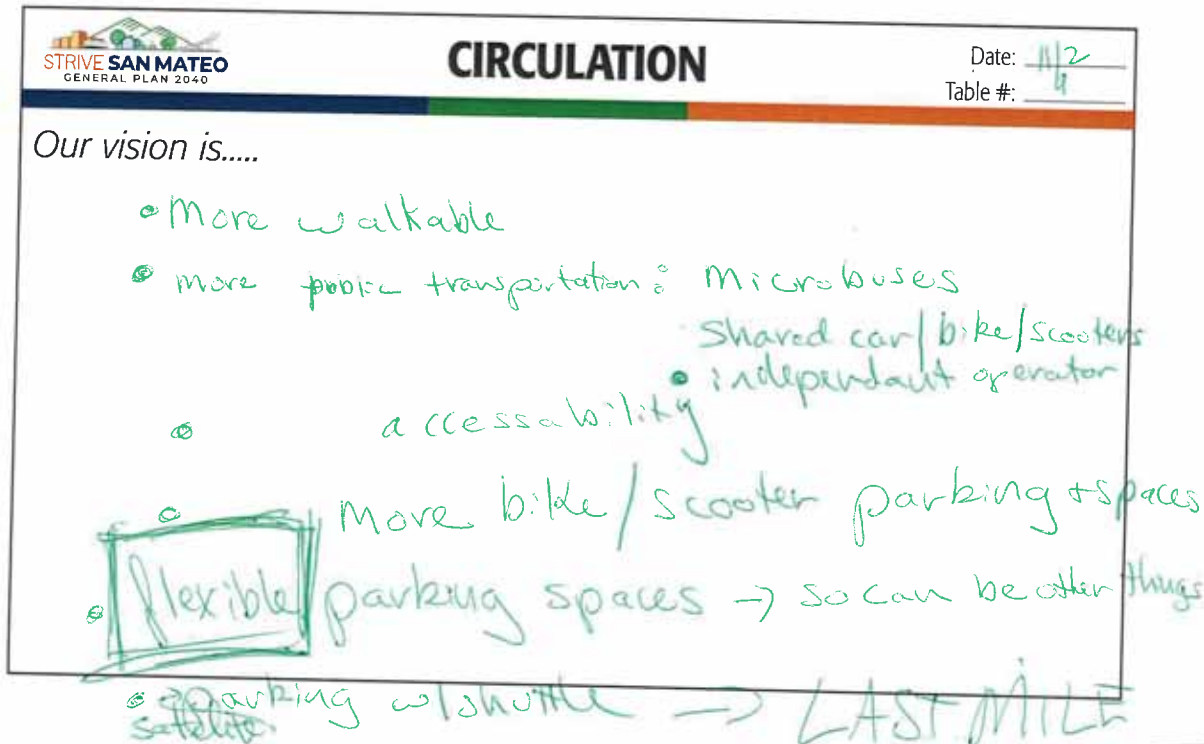 STRIVE SAN MATEO
GENERAL PLAN 2040
CIRCULATION
Date: 11/2
Table #: 4
Our vision is.....
• More walkable
• more public transportation: Microbuses
Shared car/bike/scooters
• independant operator
• accessability
• More bike/scooter parking + spaces
• flexible parking spaces → so can be other things
• parking w/shuttle → LAST MILE
satellite